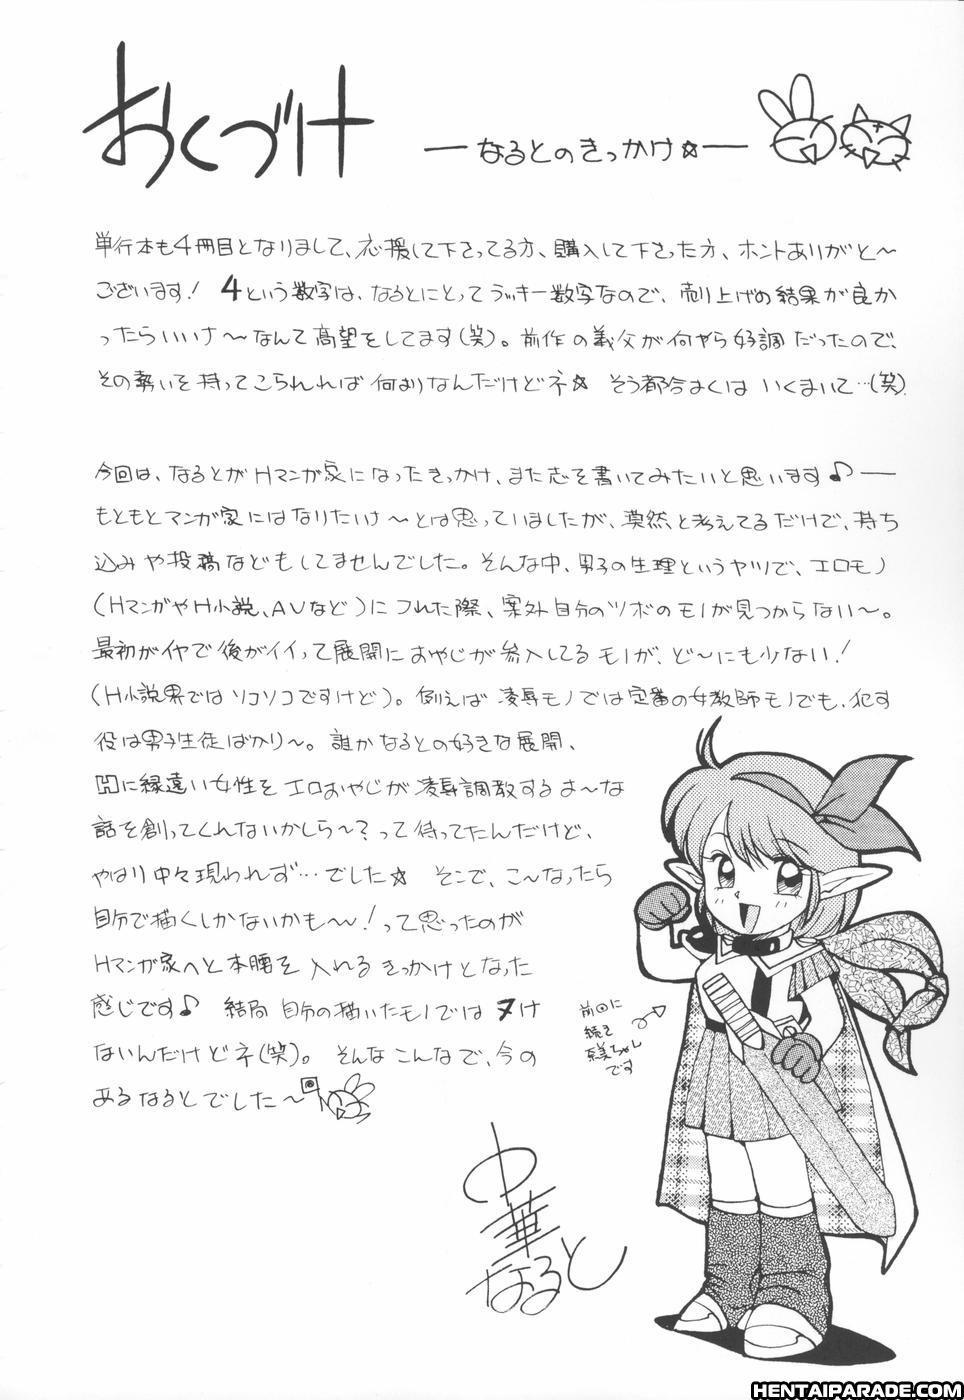 おくづけ
—なるとのきっかけ☆—
単行本も4冊目となりまして、応援して下さってる方、購入して下さった方、ホントありがと〜
ございます! 4という数字は、なるとにとってラッキー数字なので、売り上げの結果が良か
ったらいいナ〜なんて高望をしてます(笑)。前作の義父が何やら好調だったので、
その勢いを持ってこられれば何よりなんだけどネ☆ そう都合よくはいくまいて…(笑)
今回は、なるとがHマンガ家になったきっかけ、また志を書いてみたいと思います♪——
もともとマンガ家にはなりたいナ〜とは思っていましたが、漠然と考えてるだけで、持ち
込みや投稿などもしてませんでした。そんな中、男子の生理というヤツで、エロモノ
(HマンガやH小説、AVなど)にフれた際、案外自分のツボのモノが見つからない〜。
最初がイヤで後がイイって展開におやじが参入してるモノが、ど〜にも少ない!
(H小説界ではソコソコですけど)。例えば凌辱モノでは定番の女教師モノでも、犯す
役は男子生徒ばかり〜。誰かなるとの好きな展開、
Hに縁遠い女性をエロおやじが凌辱調教するよ〜な
話を創ってくんないかしら〜?って待ってたんだけど、
やはり中々現われず…でした☆ そこで、こ〜なったら
自分で描くしかないかも〜!って思ったのが
Hマンガ家へと本腰を入れるきっかけとなった
感じです♪ 結局自分の描いたモノではヌけ
ないんだけどネ(笑)。そんなこんなで、今の
あるなるとでした〜
前回に
続き
美ちゃん
です
中華
なると
HENTAIPARADE.COM